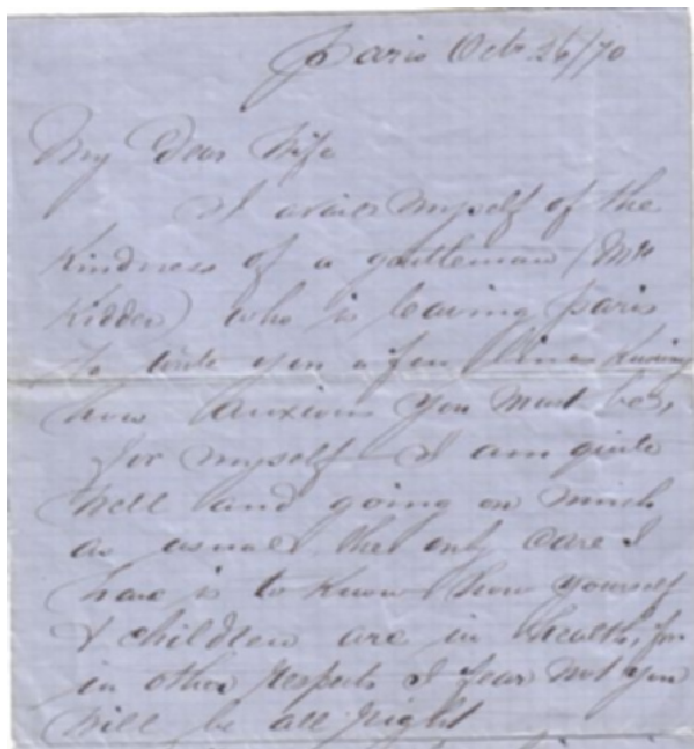 Paris Octr 26/70
My Dear Wife
I avail myself of the
kindness of a gentleman (Mr
Kidder) who is leaving paris
to write you a few lines knowing
how anxious you must be,
for myself I am quite
well and going on much
as usual, the only care I
have is to know how yourself
& children are in health, for
in other respects I fear not you
will be all right